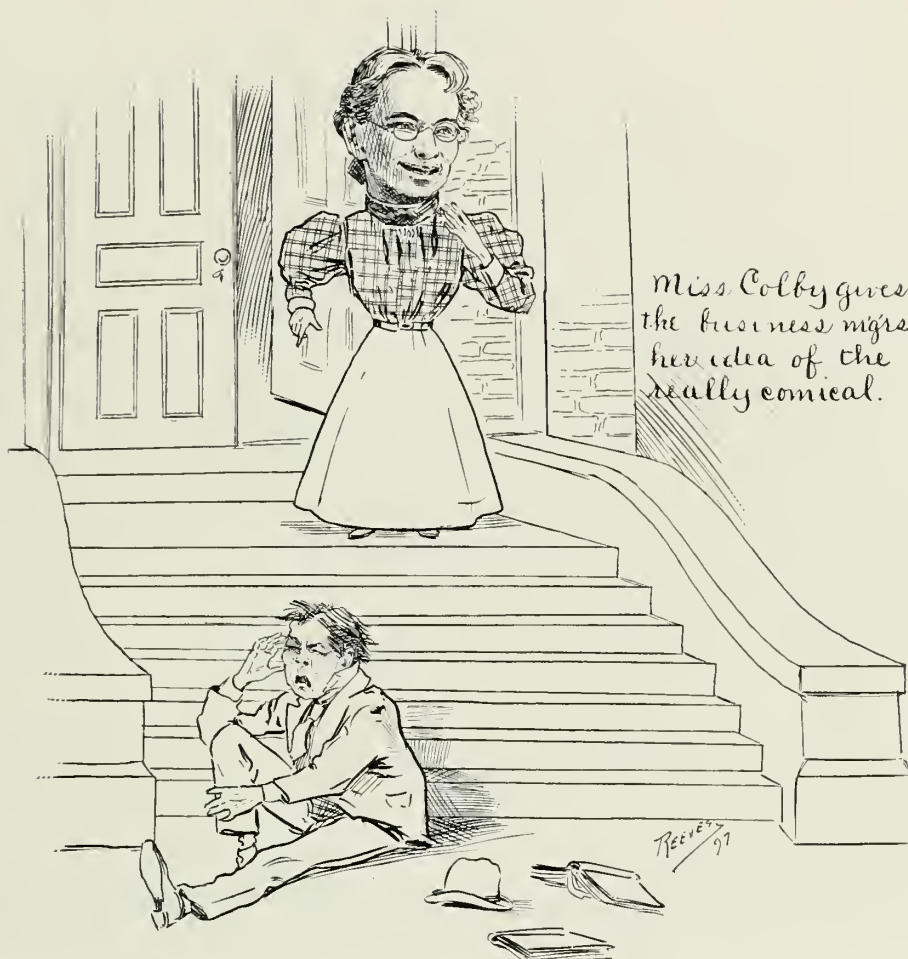 Miss Colby gives
the business mgrs
her idea of the
really comical.
REEVES
97